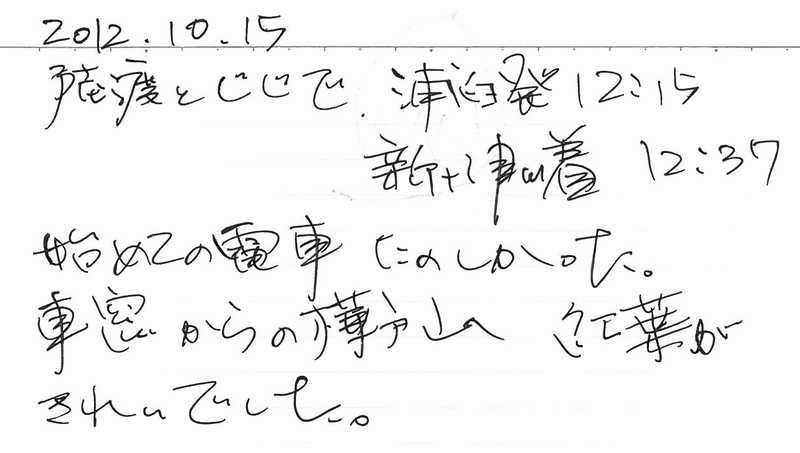 2012.10.15
とじじで 浦臼発 12:15
新十津川着 12:37
始めての電車 たのしかった。
車窓からの樺戸山 紅葉が
きれいでした。